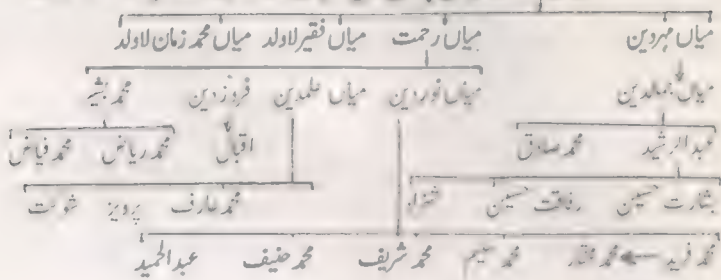 میاں مہردین میاں رحمت میاں فقیر لاولد میاں محمد زمان لاولد
میاں جمالدین میاں نوردین میاں علمدین فروزدین محمد بشیر
عبدالرشید محمد صادق اقبال محمد ریاض محمد فیاض
بشارت حسین رفاقت حسین شہزاد محمد عارف پرویز شوکت
محمد فرید محمد سلیم محمد شریف محمد حنیف عبدالحمید